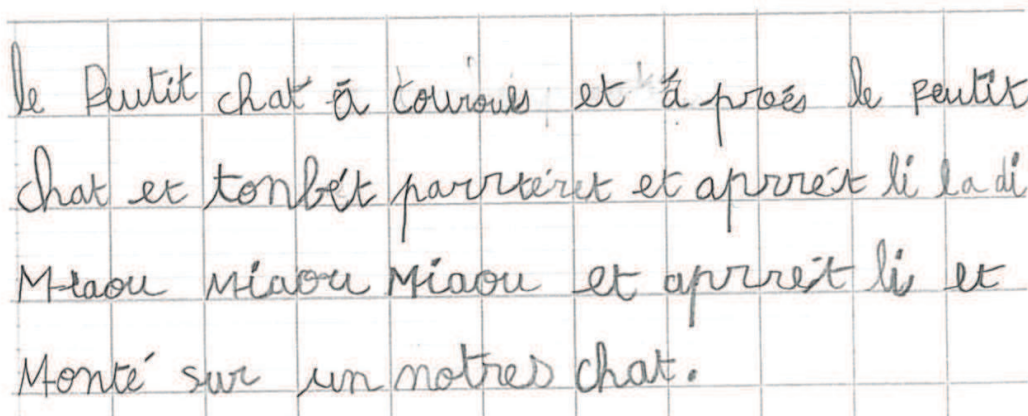 le Peutit chat à couroues et à proés le peutit
chat et tonbét parrtéret et aprrét li la di
Miaou Miaou Miaou et aprrét li et
Monté sur un notres chat.